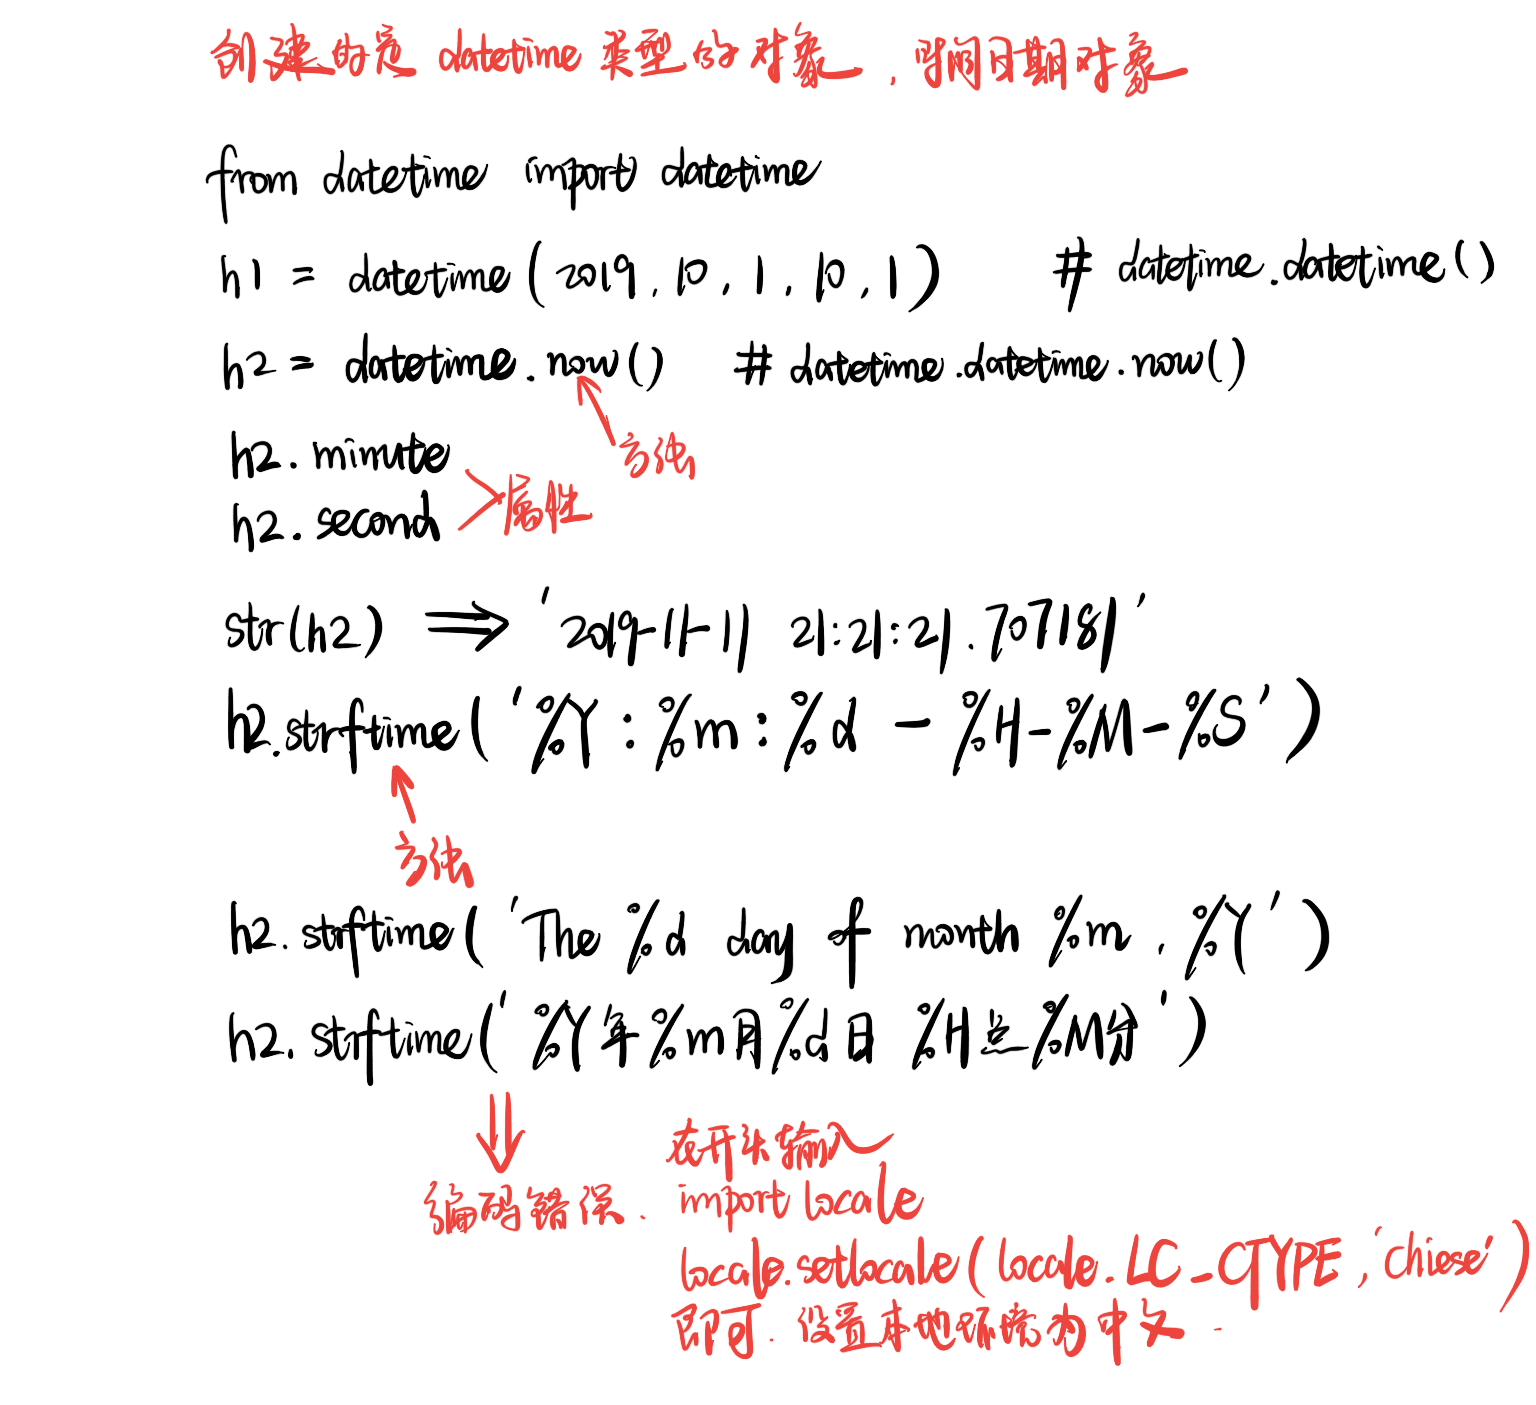 创建的是 datetime 类型的对象，时间日期对象
from datetime import datetime
h1 = datetime(2019, 10, 1, 10, 1) # datetime.datetime()
h2 = datetime.now() # datetime.datetime.now()
方法
h2.minute
h2.second
属性
str(h2) ⇒ '2019-11-11 21:21:21.707181'
h2.strftime('%Y:%m:%d - %H-%M-%S')
方法
h2.strftime('The %d day of month %m, %Y')
h2.strftime('%Y年%m月%d日 %H点%M分')
编码错误.
在开头输入
import locale
locale.setlocale(locale.LC_CTYPE, 'chiese')
即可. 设置本地环境为中文.